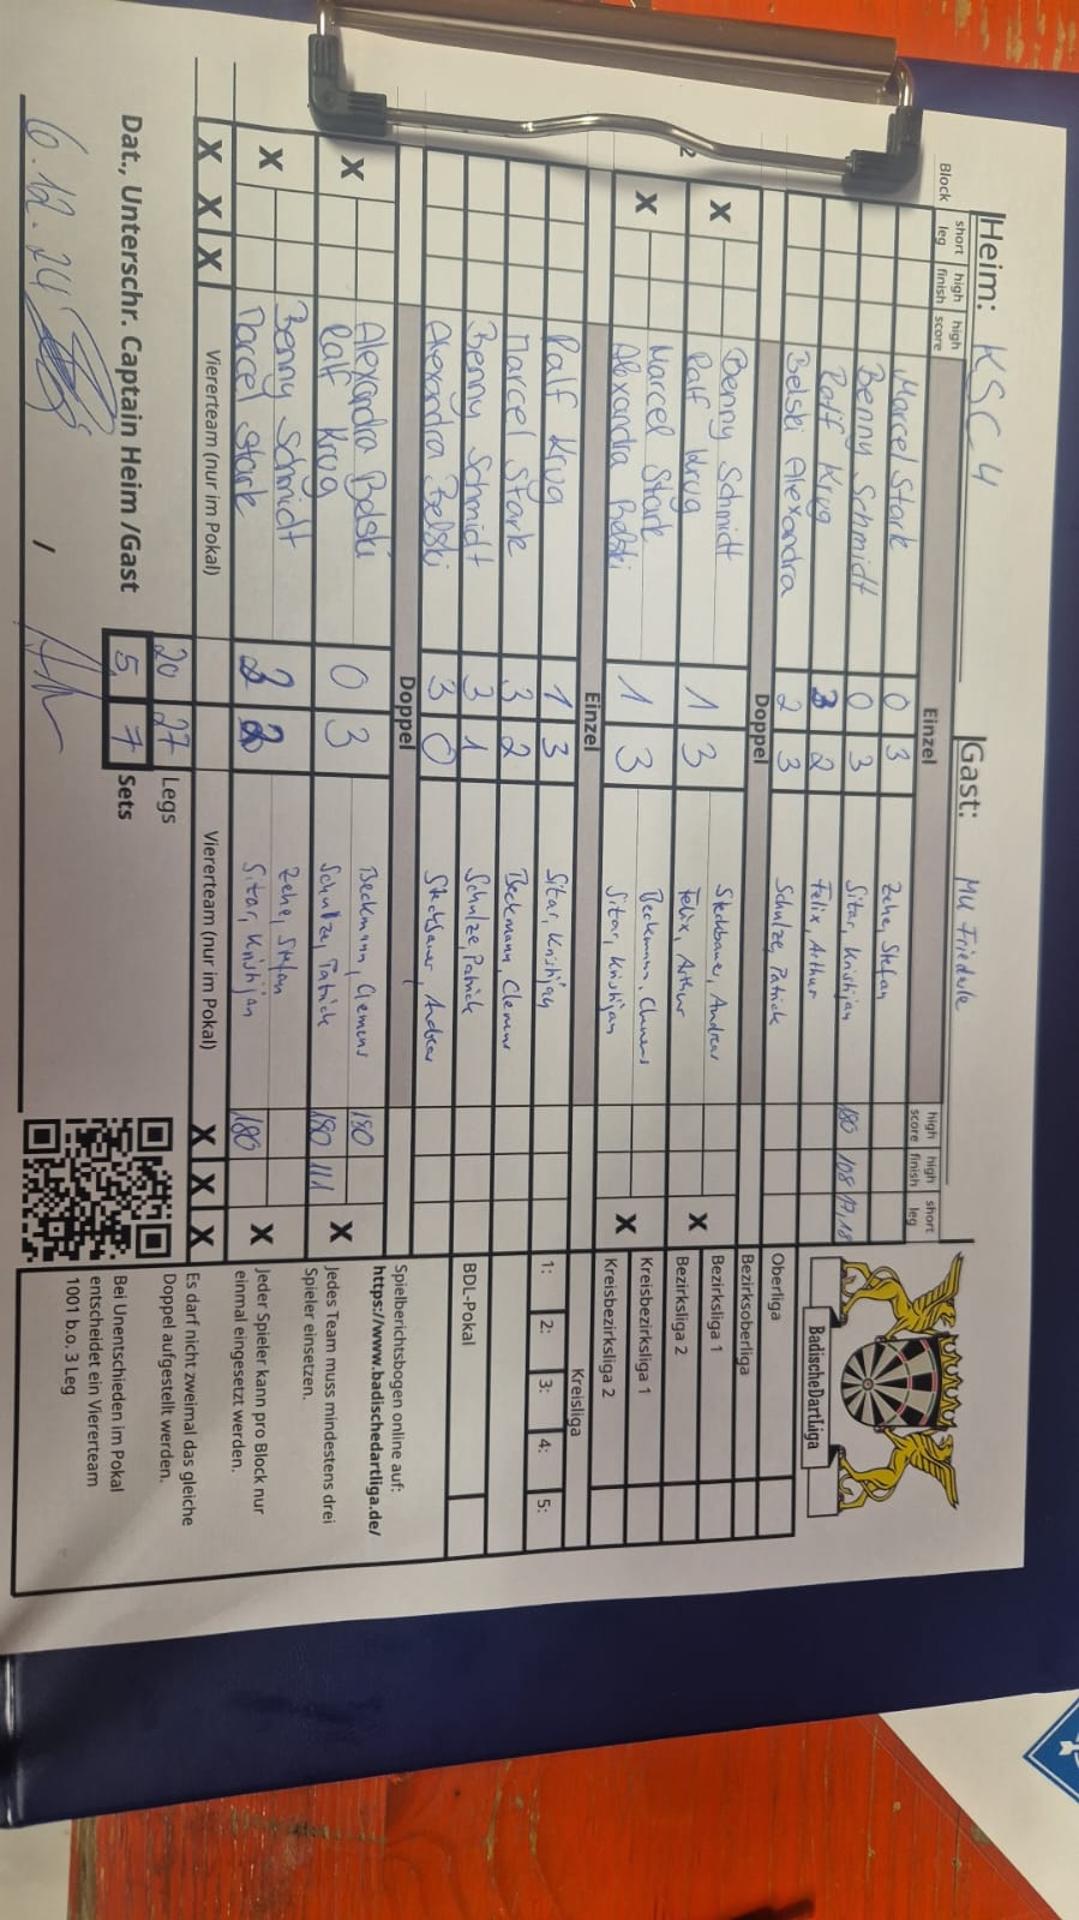 Heim: KSC 4 Gast: MU Friedule
Block short leg high finish high score Einzel high score high finish short leg
Marcel Stark 0 3 Zehe, Stefan
Benny Schmidt 0 3 Sitar, Kristijan 180 108 17,18
Ralf Krug 3 2 Felix, Arthur
Belski Alexandra 2 3 Schulze, Patrick
Doppel
X Benny Schmidt 1 3 Steckbauer, Andreas X
Ralf Krug Felix, Arthur
X Marcel Stark 1 3 Beckmann, Clemens X
Alexandra Belski Sitar, Kristijan
Einzel
Ralf Krug 1 3 Sitar, Kristijan
Marcel Stark 3 2 Beckmann, Clemens
Benny Schmidt 3 1 Schulze, Patrick
Alexandra Belski 3 0 Steckbauer, Andreas
Doppel
X Alexandra Belski 0 3 Beckmann, Clemens 180 X
Ralf Krug Schulze, Patrick 180 111
X Benny Schmidt Zehe, Stefan X
Marcel Stark Sitar, Kristijan 180
X X X Viererteam (nur im Pokal) Viererteam (nur im Pokal) X X X
20 27 Legs
Dat., Unterschr. Captain Heim /Gast 5 7 Sets
6.12.24 /
BadischeDartLiga
Oberliga
Bezirksoberliga
Bezirksliga 1
Bezirksliga 2
Kreisbezirksliga 1
Kreisbezirksliga 2
Kreisliga
1: 2: 3: 4: 5:
BDL-Pokal
Spielberichtsbogen online auf:
https://www.badischedartliga.de/
Jedes Team muss mindestens drei
Spieler einsetzen.
Jeder Spieler kann pro Block nur
einmal eingesetzt werden.
Es darf nicht zweimal das gleiche
Doppel aufgestellt werden.
Bei Unentschieden im Pokal
entscheidet ein Viererteam
1001 b.o. 3 Leg